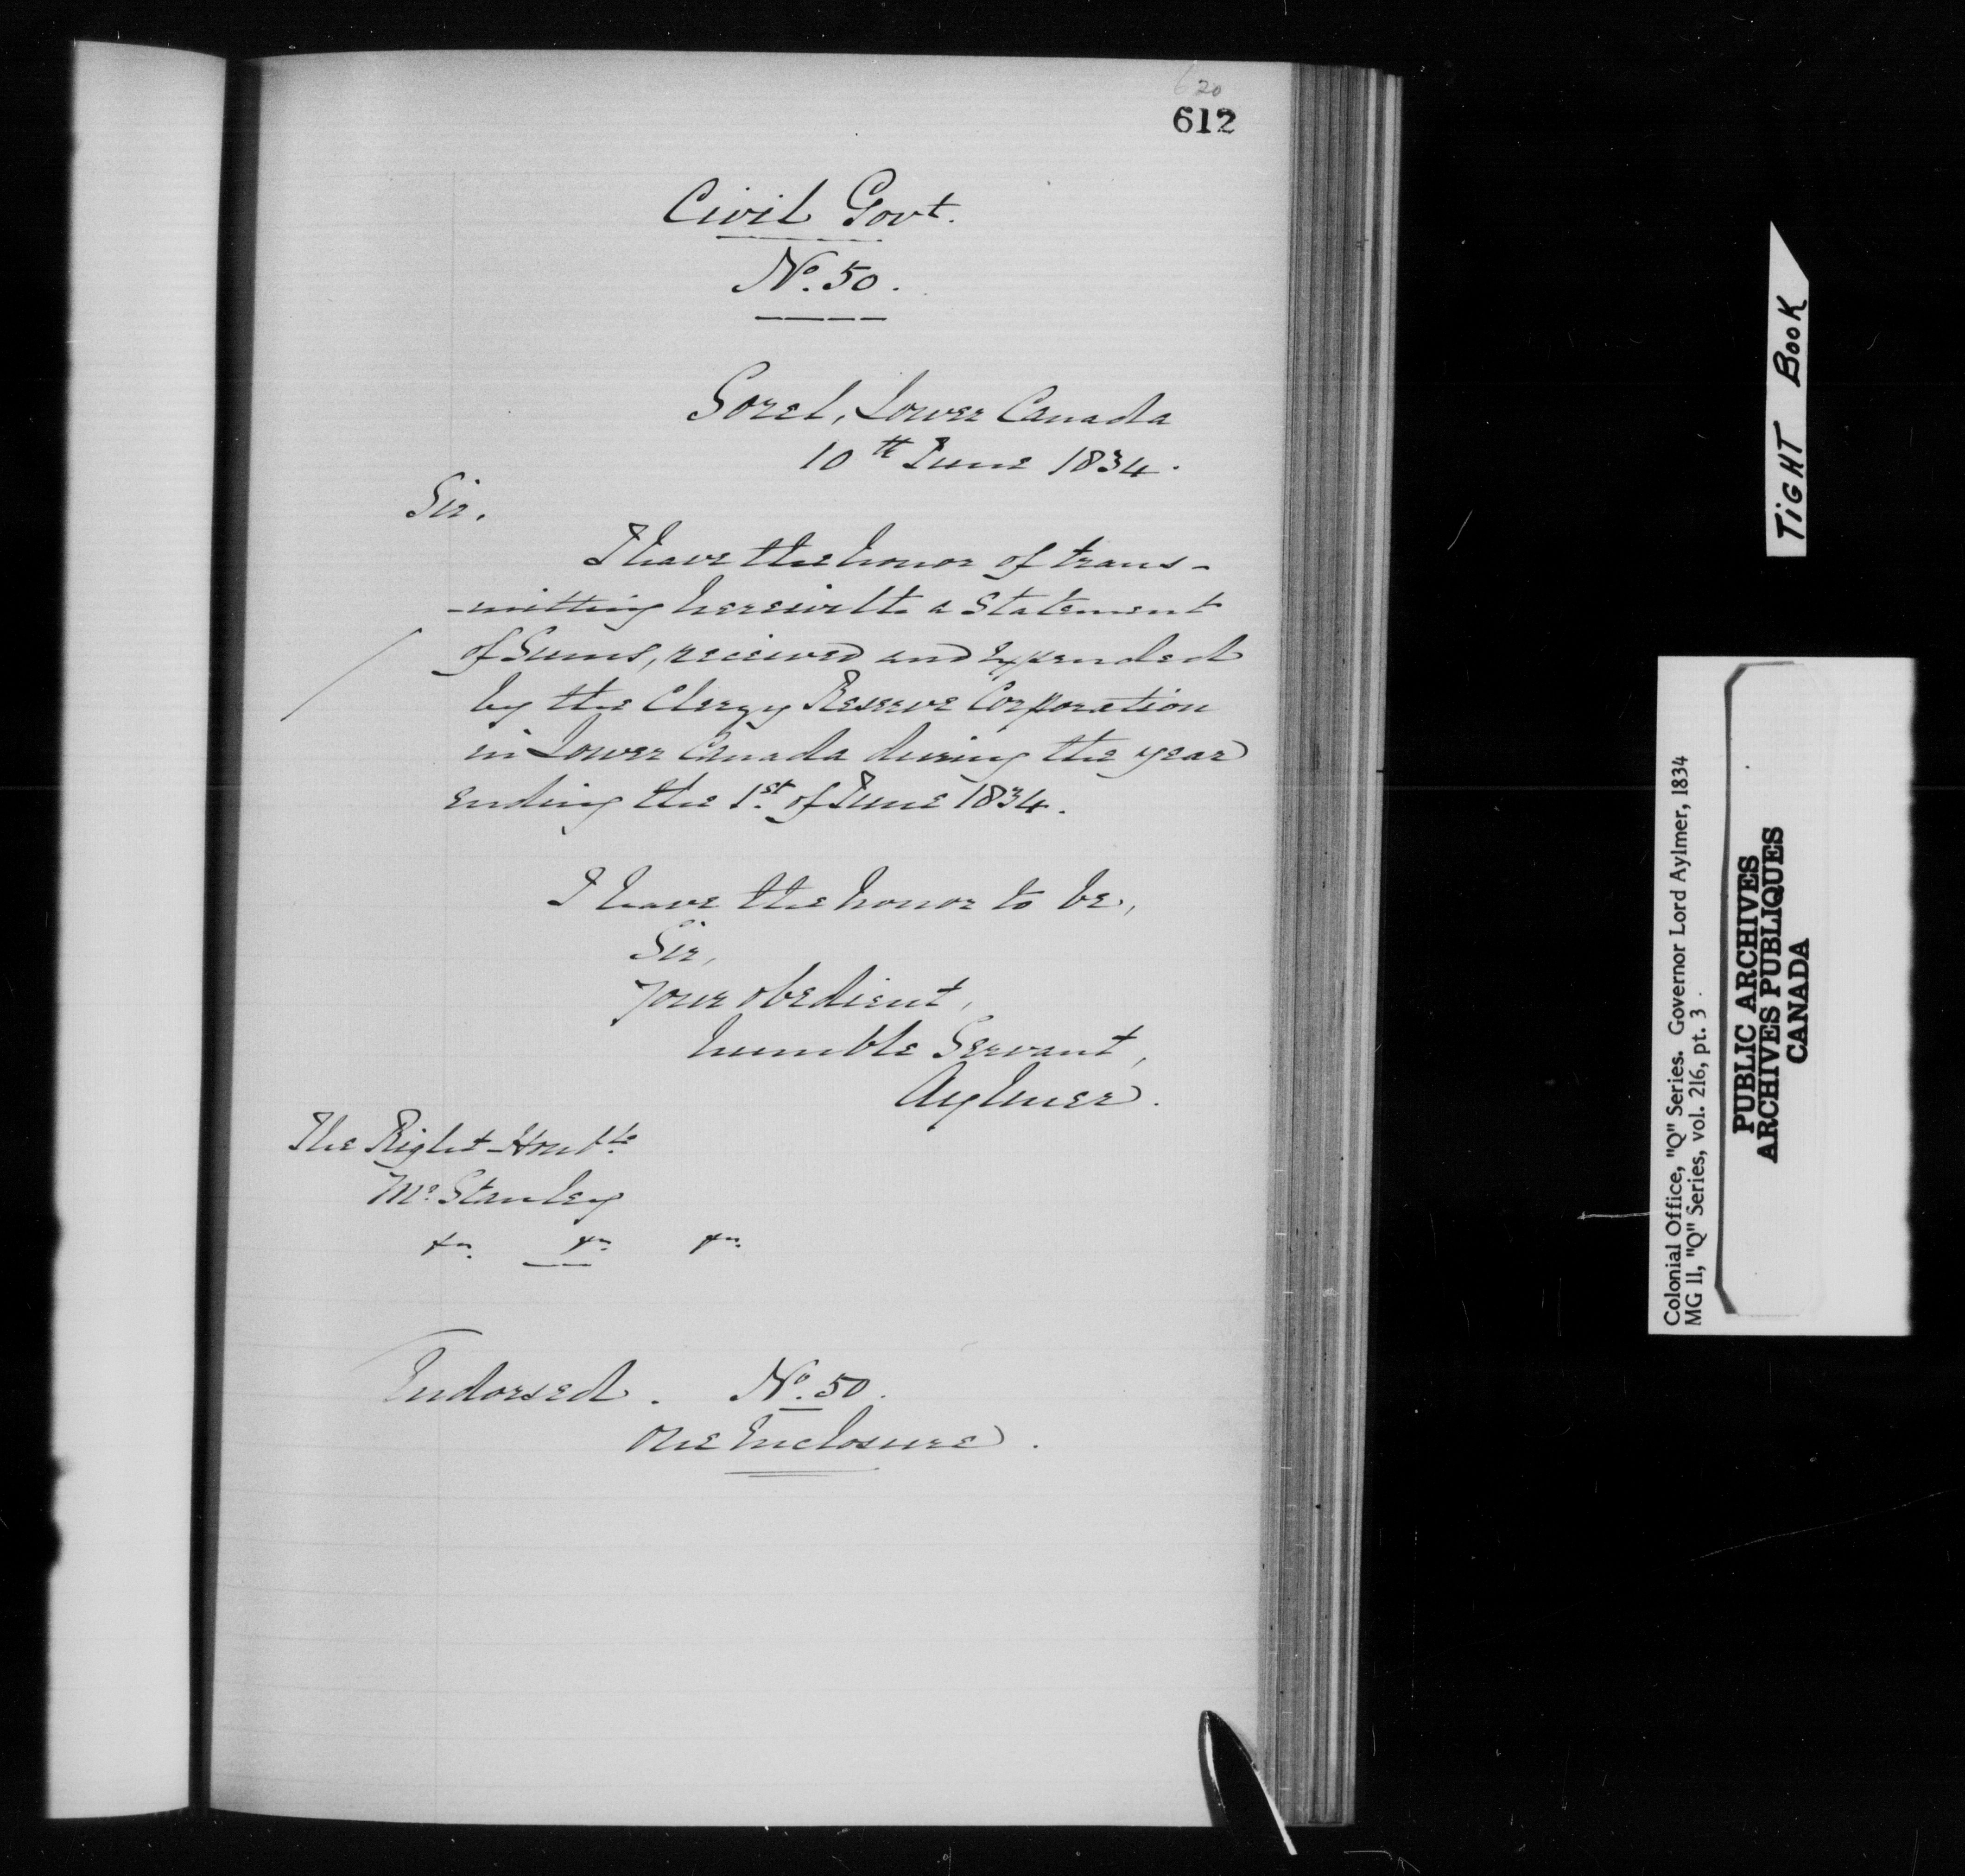 620
612
Civil Govt.
No. 50.
Sorel, Lower Canada
10th June 1834.
Sir,
I have the honor of trans-
-mitting herewith a Statement
of Sums, received and expended
by the Clergy Reserve Corporation
in Lower Canada during the year
ending the 1st. of June 1834.
I have the honor to be,
Sir,
Your obedient,
humble Servant,
Aylmer.
The Right Honble
Mr. Stanley
&c. &c. &c.
Endorsed. No. 50.
One Enclosure.
TIGHT BOOK
Colonial Office, "Q" Series. Governor Lord Aylmer, 1834
MG 11, "Q" Series, vol. 216, pt. 3.
PUBLIC ARCHIVES
ARCHIVES PUBLIQUES
CANADA